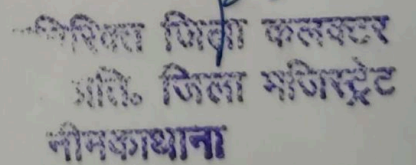 अतिरिक्त जिला कलक्टर
अति० जिला मजिस्ट्रेट
नीमकाथाना